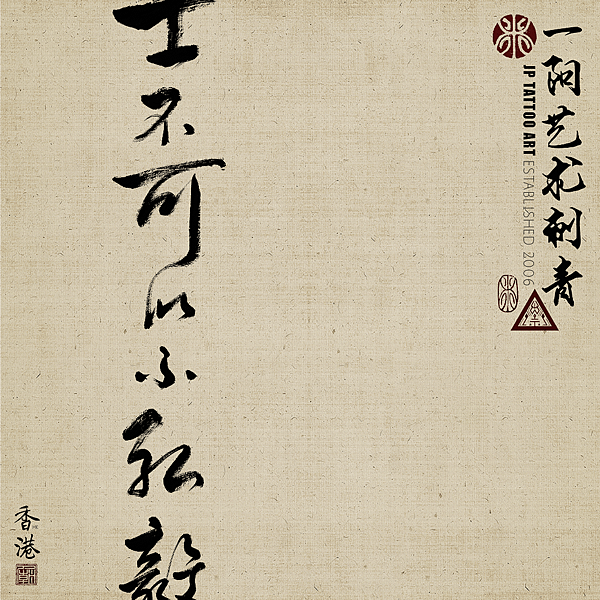 一阿艺术刺青
JP TATTOO ART ESTABLISHED 2006
士不可以不弘毅
香港